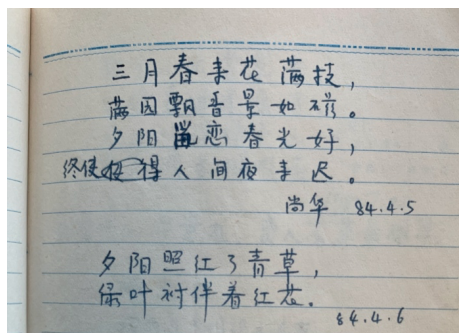 三月春来花满枝，
满园飘香景如磁。
夕阳留恋春光好，
终使得人间夜来迟。
尚华 84.4.5
夕阳照红了青草，
绿叶衬伴着红花。
84.4.6